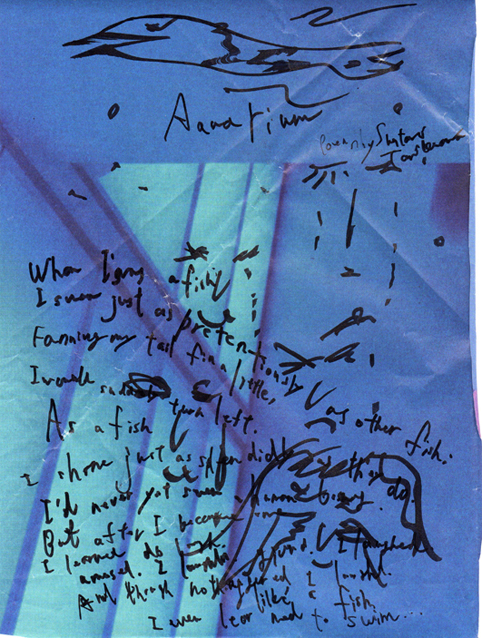 Aquarium
Poem by Shuntaro
When I was a fish
I swam just as pretentiously
as other fish.
Fanning my tail fin a little,
I would suddenly turn left.
As a fish
I shone just as splendidly as they do.
I'd never yet seen a human being.
But after I became one
I learned to look around. I laughed
amused. I
And though nothing I
like a fish.
I even learned to swim...